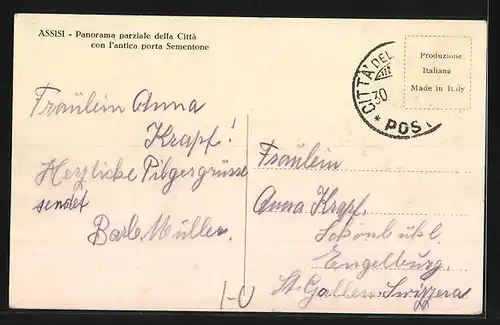 ASSISI - Panorama parziale della Città
con l'antica porta Sementone
Produzione
Italiana
Made in Italy
CITTA' DEL
30
* POST
Fräulein Anna
Krapf!
Herzliche Pilgergrüsse
sendet
Barb. Müller.
Fräulein
Anna Krapf.
Schönbühl.
Engelburg.
St. Gallen. Swizzera